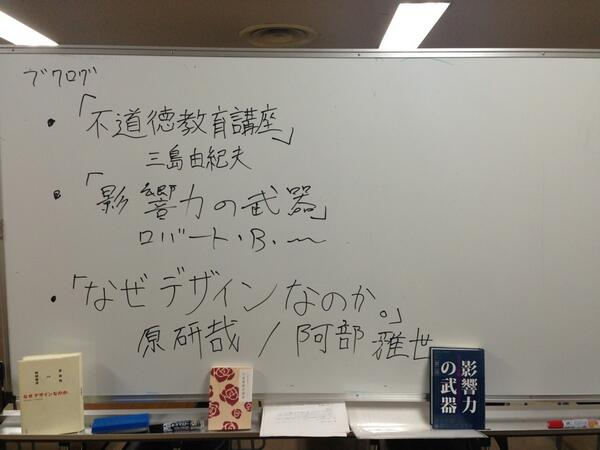 ブクログ
・「不道徳教育講座」
三島由紀夫
・「影響力の武器」
ロバート・B.
・「なぜデザインなのか。」
原研哉/阿部雅世
なぜデザインなのか。
影響力
の武器